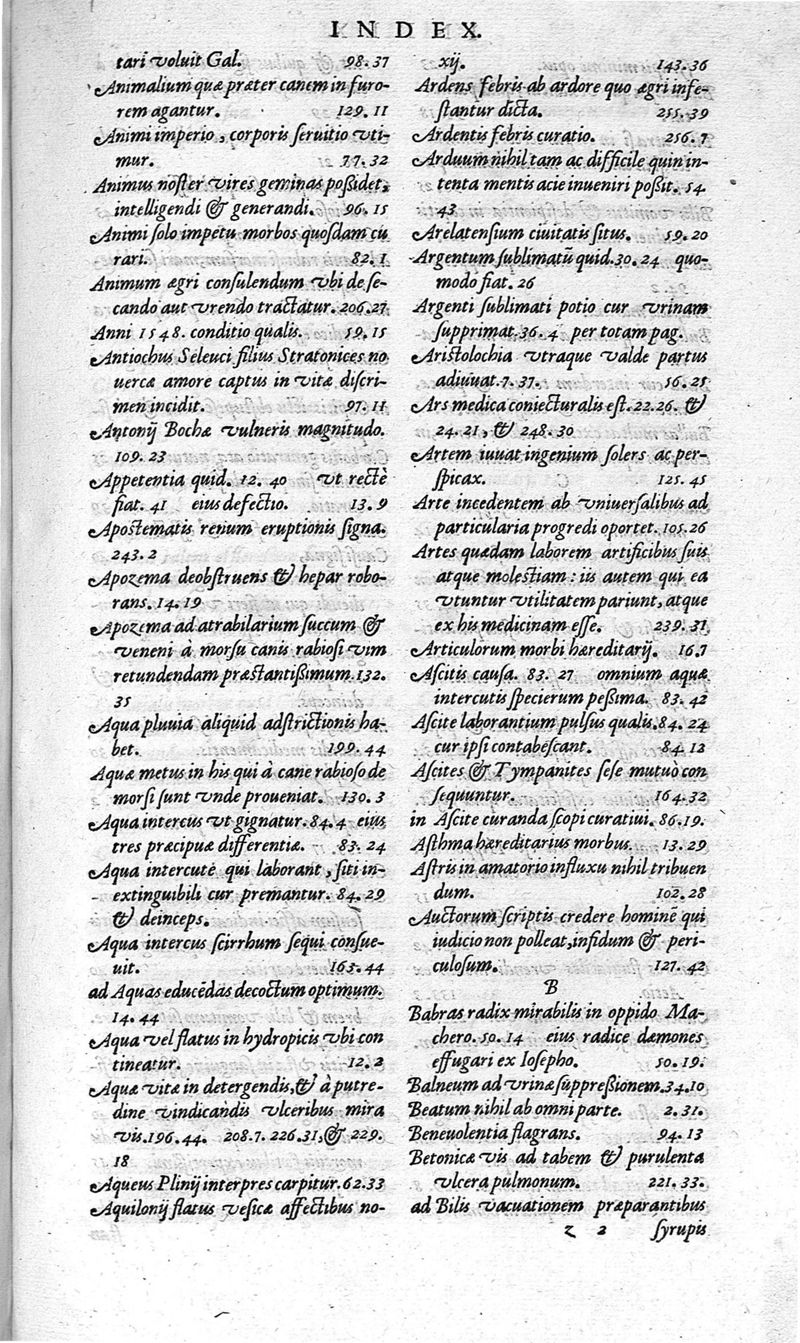 INDEX.
tari voluit Gal. 98.37
Animalium quæ præter canem in furo-
rem agantur. 129.11
Animi imperio, corporis ſeruitio vti-
mur. 77.32
Animus noſter vires geminas poßidet,
intelligendi & generandi. 96.15
Animi ſolo impetu morbos quoſdam cu
rari. 82.1
Animum ægri conſulendum vbi de ſe-
cando aut vrendo tractatur. 206.27
Anni 1548. conditio qualis. 59.15
Antiochus Seleuci filius Stratonices no
uercæ amore captus in vitæ diſcri-
men incidit. 97.11
Antonij Bochæ vulneris magnitudo.
109.23
Appetentia quid. 12.40 vt rectè
fiat. 41 eius defectio. 13.9
Apoſtematis renum eruptionis ſigna.
243.2
Apozema deobſtruens & hepar robo-
rans. 14.19
Apozema ad atrabilarium ſuccum &
veneni à morſu canis rabioſi vim
retundendam præſtantißimum. 132.
35
Aqua pluuia aliquid adſtrictionis ha-
bet. 199.44
Aquæ metus in his qui à cane rabioſo de
morſi ſunt vnde proueniat. 130.3
Aqua intercus vt gignatur. 84.4 eius
tres præcipuæ differentiæ. 83.24
Aqua intercute qui laborant, ſiti in-
extinguibili cur premantur. 84.29
& deinceps.
Aqua intercus ſcirrhum ſequi conſue-
uit. 163.44
ad Aquas educēdas decoctum optimum.
14.44
Aqua vel flatus in hydropicis vbi con
tineatur. 12.2
Aquæ vitæ in detergendis, & à putre-
dine vindicandis vlceribus mira
vis. 196.44. 208.7. 226.31, & 229.
18
Aqueus Plinij interpres carpitur. 62.33
Aquilonij flatus veſicæ affectibus no-
xij. 143.36
Ardens febris ab ardore quo ægri infe-
ſtantur dicta. 255.39
Ardentis febris curatio. 256.7
Arduum nihil tam ac difficile quin in-
tenta mentis acie inueniri poßit. 54.
43
Arelatenſium ciuitatis ſitus. 59.20
Argentum ſublimatū quid. 30.24 quo-
modo fiat. 26
Argenti ſublimati potio cur vrinam
ſupprimat. 36.4 per totam pag.
Ariſtolochia vtraque valde partus
adiuuat. 7.37. 56.25
Ars medica coniecturalis eſt. 22.26. &
24.21, & 248.30
Artem iuuat ingenium ſolers ac per-
ſpicax. 125.45
Arte incedentem ab vniuerſalibus ad
particularia progredi oportet. 105.26
Artes quædam laborem artificibus ſuis
atque moleſtiam: iis autem qui ea
vtuntur vtilitatem pariunt, atque
ex his medicinam eſſe. 239.31
Articulorum morbi hæreditarij. 16.7
Aſcitis cauſa. 83.27 omnium aquæ
intercutis ſpecierum peßima. 83.42
Aſcite laborantium pulſus qualis. 84.24
cur ipſi contabeſcant. 84.12
Aſcites & Tympanites ſeſe mutuò con
ſequuntur. 164.32
in Aſcite curanda ſcopi curatiui. 86.19.
Aſthma hæreditarius morbus. 13.29
Aſtris in amatorio influxu nihil tribuen
dum. 102.28
Auctorum ſcriptis credere hominē qui
iudicio non polleat, infidum & peri-
culoſum. 127.42
B
Babras radix mirabilis in oppido Ma-
chero. 50.14 eius radice dæmones
effugari ex Ioſepho. 50.19.
Balneum ad vrinæ ſuppreßionem. 34.10
Beatum nihil ab omni parte. 2.31.
Beneuolentia flagrans. 94.13
Betonicæ vis ad tabem & purulenta
vlcera pulmonum. 221.33.
ad Bilis vacuationem præparantibus
z 2 ſyrupis